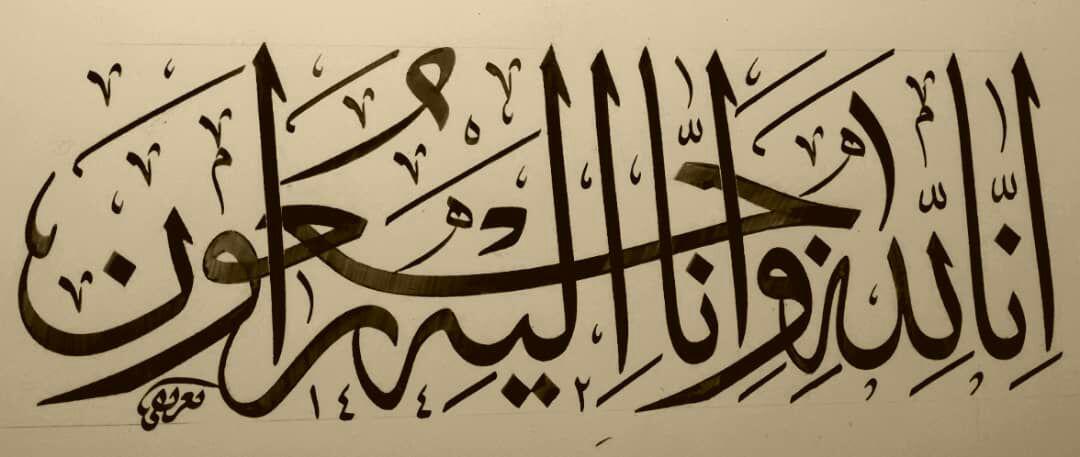 اِنَّا لِلّٰهِ وَاِنَّا اِلَيْهِ رَاجِعُونَ
١٤٤٢